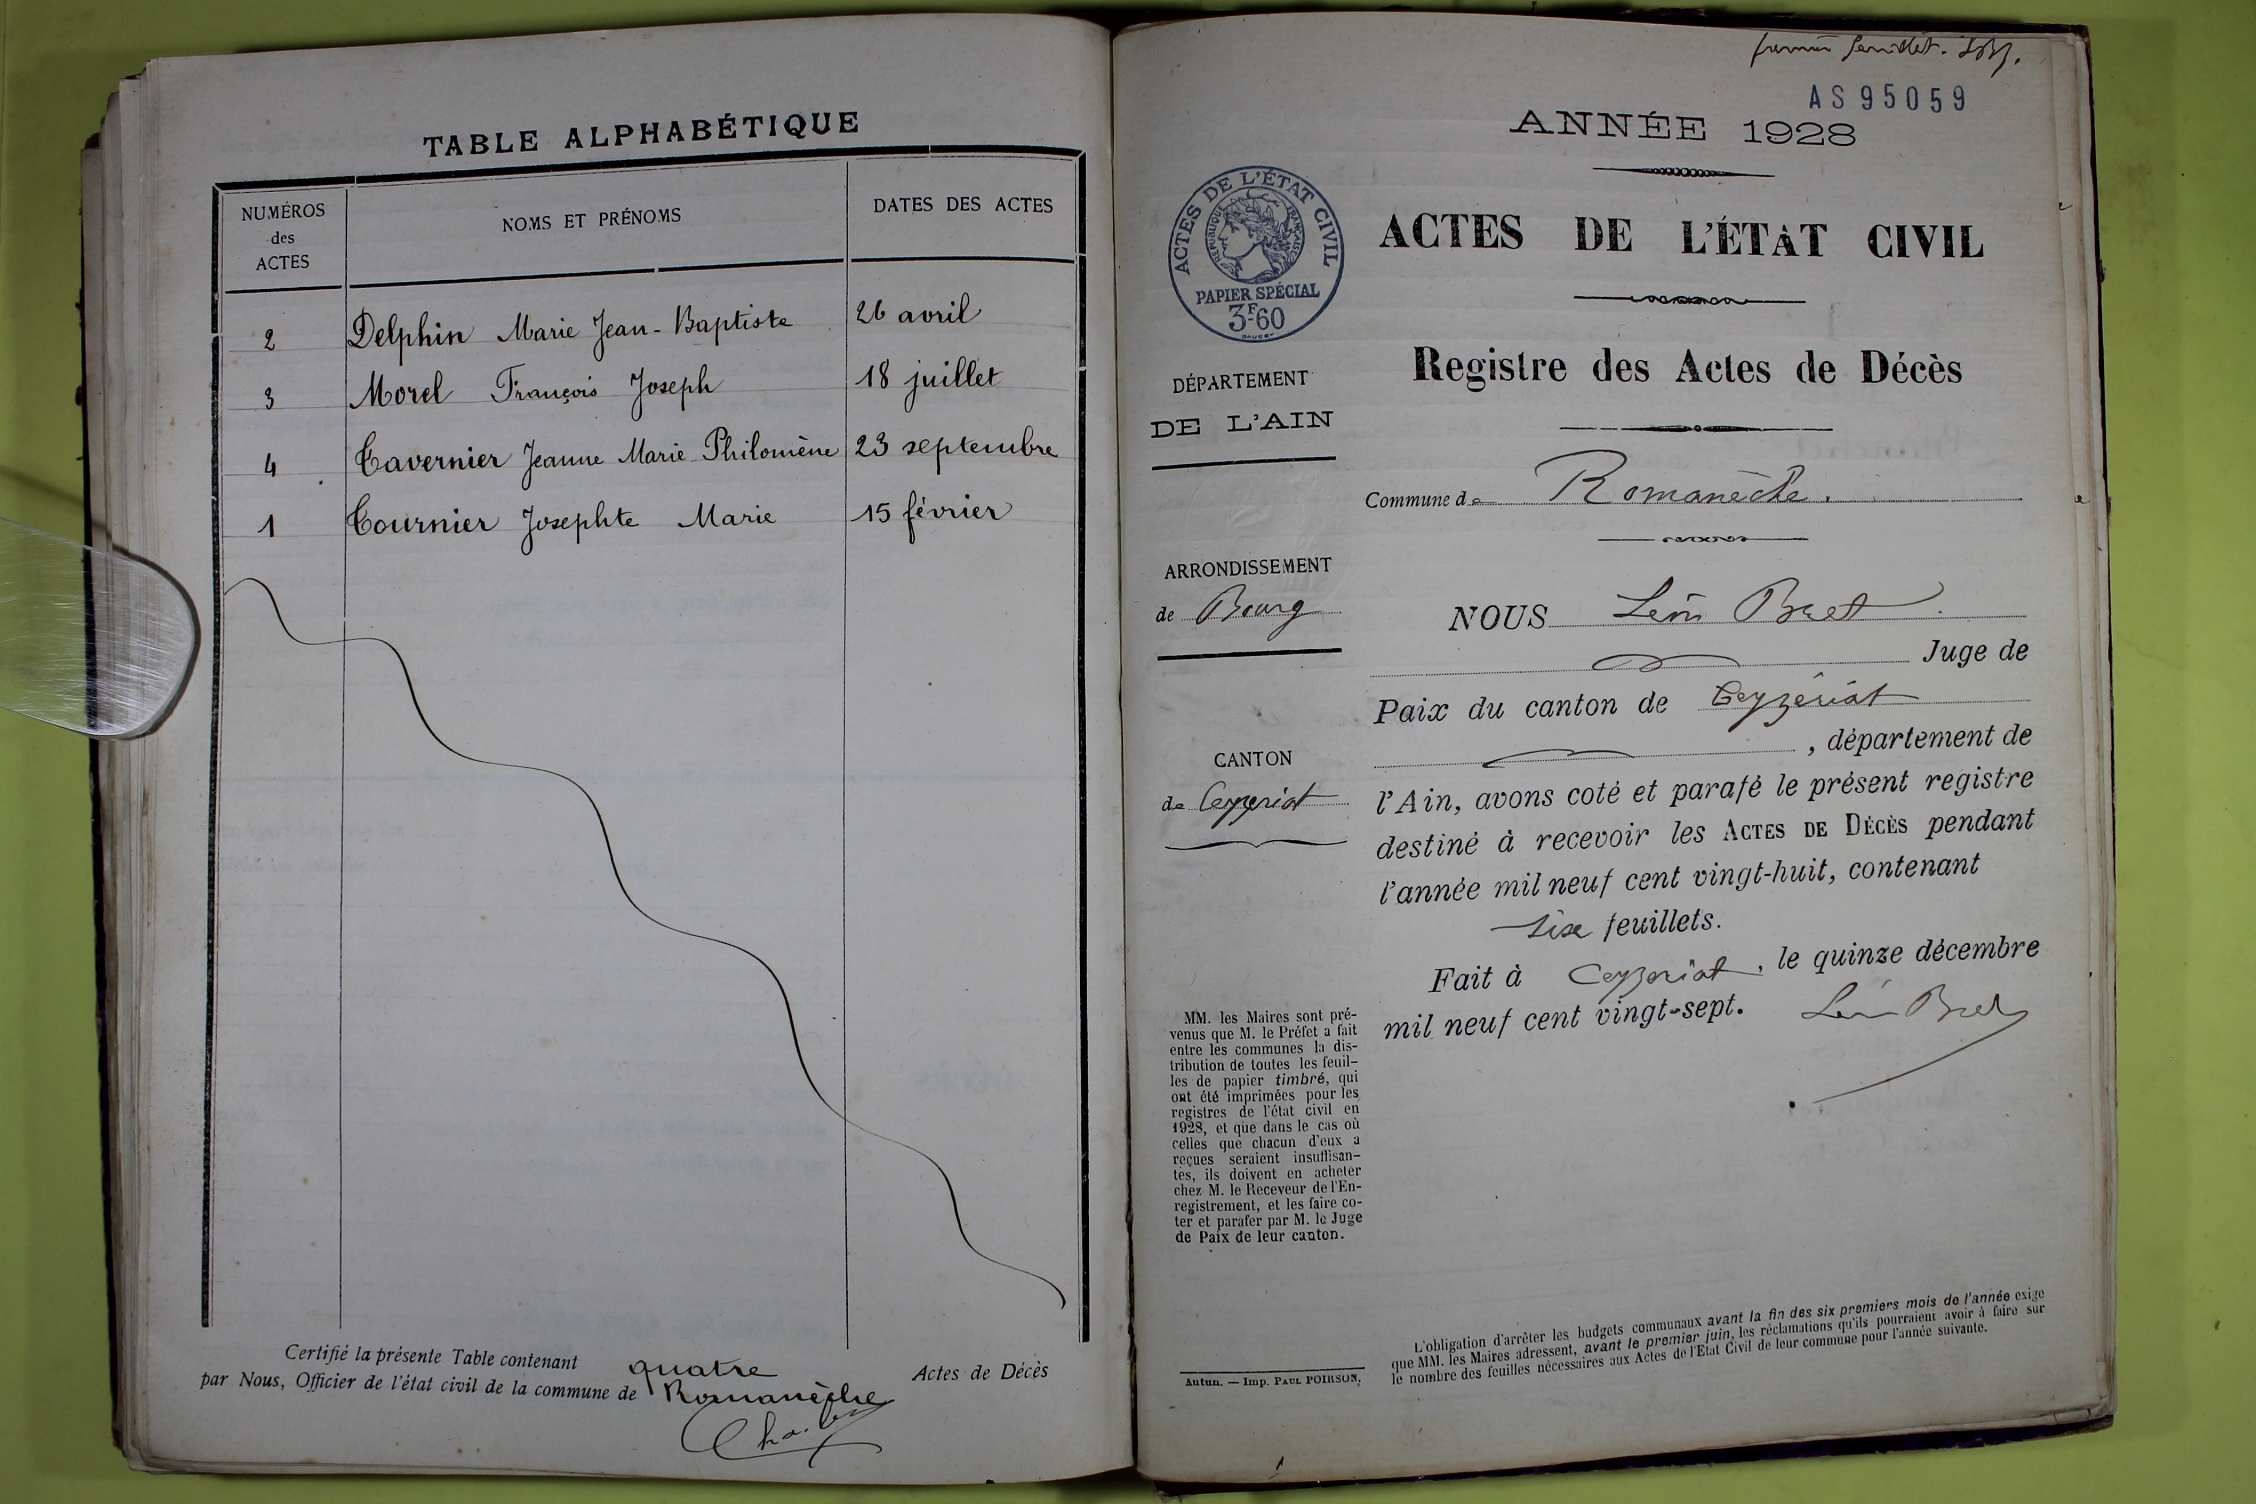 TABLE ALPHABÉTIQUE
NUMÉROS
des
ACTES
NOMS ET PRÉNOMS
DATES DES ACTES
2 Delphin Marie Jean-Baptiste 26 avril
3 Morel François Joseph 18 juillet
4 Tavernier Jeanne Marie Philomène 23 septembre
1 Tournier Josephte Marie 15 février
Certifié la présente Table contenant quatre Actes de Décès
par Nous, Officier de l'état civil de la commune de Romanèche
premier feuillet.
AS 95059
ANNÉE 1928
ACTES DE L'ÉTAT CIVIL
RÉPUBLIQUE FRANÇAISE
PAPIER SPÉCIAL
3F60
ACTES DE L'ÉTAT CIVIL
Registre des Actes de Décès
DÉPARTEMENT
DE L'AIN
Commune de Romanèche.
ARRONDISSEMENT
de Bourg
CANTON
de Ceyzeriat
NOUS Léon Bret
Juge de
Paix du canton de Ceyzériat
, département de
l'Ain, avons coté et parafé le présent registre
destiné à recevoir les ACTES DE DÉCÈS pendant
l'année mil neuf cent vingt-huit, contenant
six feuillets.
Fait à Ceyzeriat, le quinze décembre
mil neuf cent vingt-sept.
Léon Bret
MM. les Maires sont pré-
venus que M. le Préfet a fait
entre les communes la dis-
tribution de toutes les feuil-
les de papier timbré, qui
ont été imprimées pour les
registres de l'état civil en
1928, et que dans le cas où
celles que chacun d'eux a
reçues seraient insuffisan-
tes, ils doivent en acheter
chez M. le Receveur de l'En-
registrement, et les faire co-
ter et parafer par M. le Juge
de Paix de leur canton.
Autun. — Imp. PAUL POIRSON.
L'obligation d'arrêter les budgets communaux avant la fin des six premiers mois de l'année exige
que MM. les Maires adressent, avant le premier juin, les réclamations qu'ils pourraient avoir à faire sur
le nombre des feuilles nécessaires aux Actes de l'Etat Civil de leur commune pour l'année suivante.